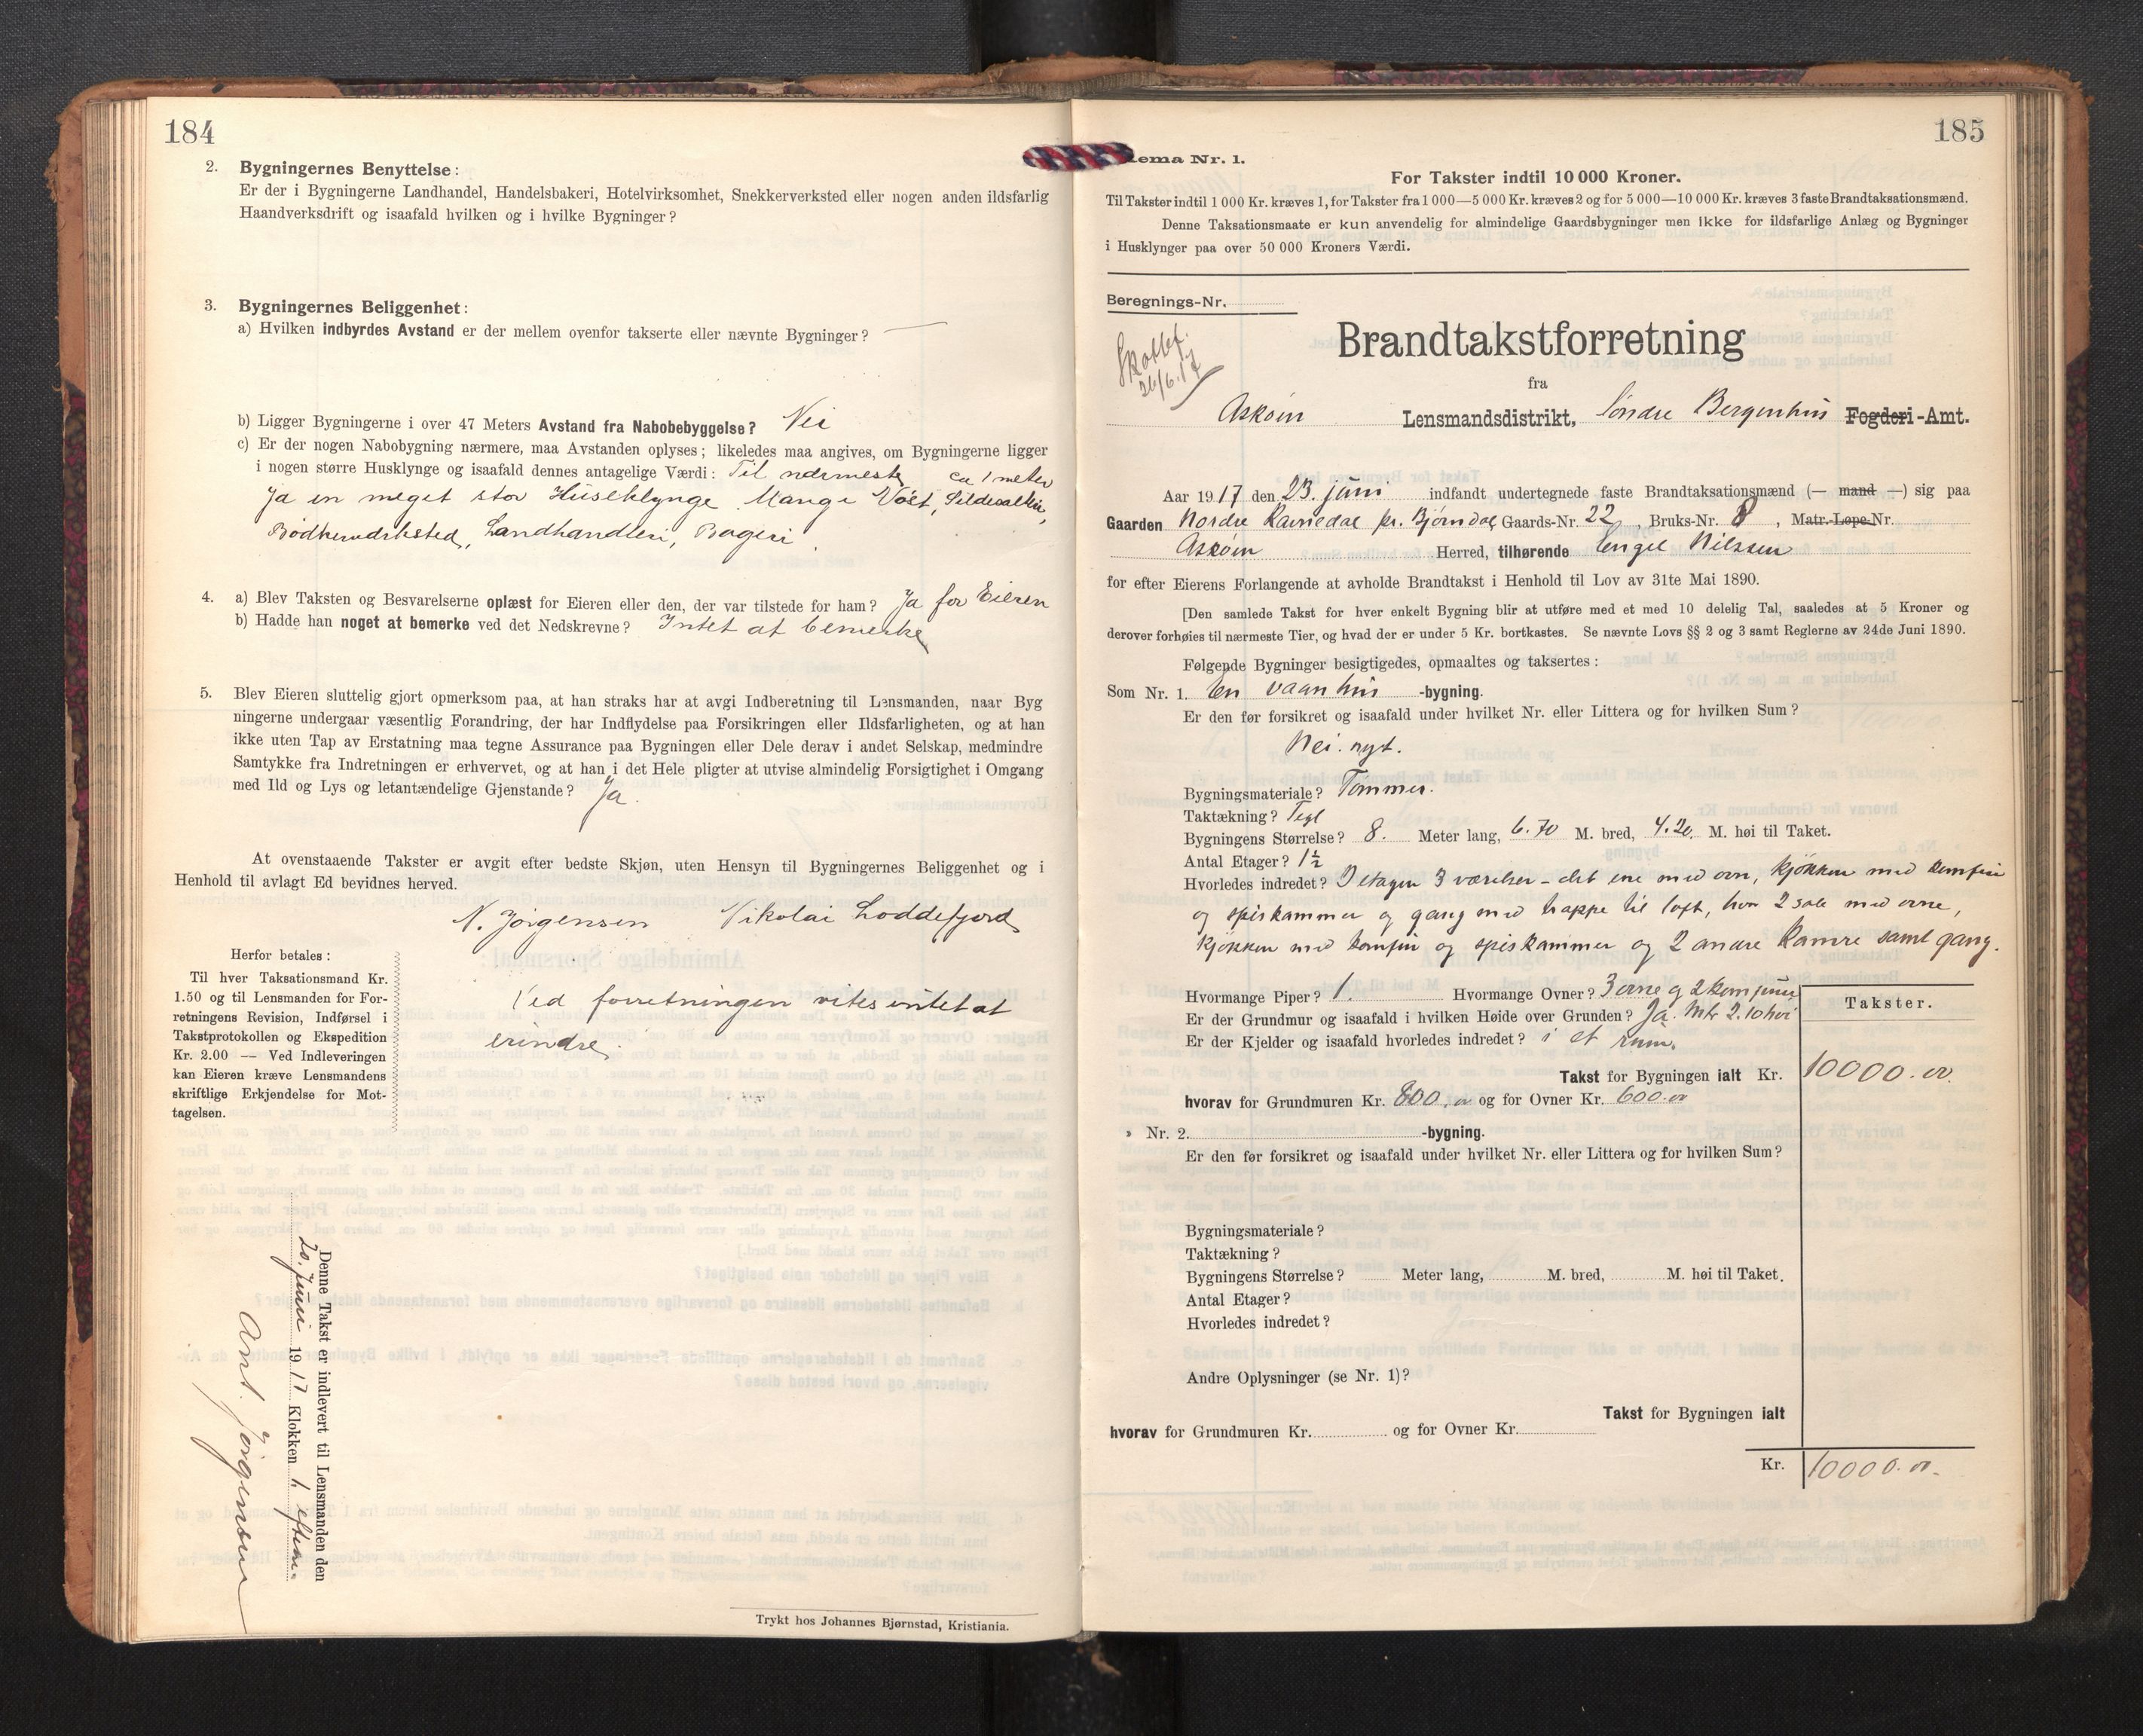 184
2. Bygningernes Benyttelse:
Er der i Bygningerne Landhandel, Handelsbakeri, Hotelvirksomhet, Snekkerverksted eller nogen anden ildsfarlig
Haandverksdrift og isaafald hvilken og i hvilke Bygninger?
3. Bygningernes Beliggenhet:
a) Hvilken indbyrdes Avstand er der mellem ovenfor takserte eller nævnte Bygninger? —
b) Ligger Bygningerne i over 47 Meters Avstand fra Nabobebyggelse? Nei
c) Er der nogen Nabobygning nærmere, maa Avstanden oplyses; likeledes maa angives, om Bygningerne ligger
i nogen større Husklynge og isaafald dennes antagelige Værdi: Til nærmeste ca 1 meter
Ja en meget stor Huseklynge. Mange Vaast, Sildesalteri,
Bødkerverksted, Landhandleri, Bageri
4. a) Blev Taksten og Besvarelserne oplæst for Eieren eller den, der var tilstede for ham? Ja for Eieren
b) Hadde han noget at bemerke ved det Nedskrevne? Intet at bemerke
5. Blev Eieren sluttelig gjort opmerksom paa, at han straks har at avgi Indberetning til Lensmanden, naar Byg
ningerne undergaar væsentlig Forandring, der har Indflydelse paa Forsikringen eller Ildsfarligheten, og at han
ikke uten Tap av Erstatning maa tegne Assurance paa Bygningen eller Dele derav i andet Selskap, medmindre
Samtykke fra Indretningen er erhvervet, og at han i det Hele pligter at utvise almindelig Forsigtighet i Omgang
med Ild og Lys og letantændelige Gjenstande? Ja.
At ovenstaaende Takster er avgit efter bedste Skjøn, uten Hensyn til Bygningernes Beliggenhet og i
Henhold til avlagt Ed bevidnes herved.
N. Jørgensen Nikolai Loddefjord
Herfor betales:
Til hver Taksationsmand Kr.
1.50 og til Lensmanden for For-
retningens Revision, Indførsel i
Takstprotokollen og Ekspedition
Kr. 2.00 — Ved Indleveringen
kan Eieren kræve Lensmandens
skriftlige Erkjendelse for Mot-
tagelsen.
Ved forretningen vites intet at
erindre.
Denne Takst er indlevert til Lensmanden den
20. Juni 1917 Klokken 1. efterm.
Ant. Jørgensen
Trykt hos Johannes Bjørnstad, Kristiania.
185
ema Nr. 1.
For Takster indtil 10 000 Kroner.
Til Takster indtil 1 000 Kr. kræves 1, for Takster fra 1 000—5 000 Kr. kræves 2 og for 5 000—10 000 Kr. kræves 3 faste Brandtaksationsmænd.
Denne Taksationsmaate er kun anvendelig for almindelige Gaardsbygninger men ikke for ildsfarlige Anlæg og Bygninger
i Husklynger paa over 50 000 Kroners Værdi.
Beregnings-Nr.
26/6.17
Brandtakstforretning
fra
Askøen Lensmandsdistrikt, Søndre Bergenhus Fogderi-Amt.
Aar 1917 den 23. juni indfandt undertegnede faste Brandtaksationsmænd (— mand —) sig paa
Gaarden Nordre Ravnedal pr. Bjørndal Gaards-Nr. 22, Bruks-Nr. 8, Matr.-Løpe-Nr.
Askøen Herred, tilhørende Engel Nilssen
for efter Eierens Forlangende at avholde Brandtakst i Henhold til Lov av 31te Mai 1890.
[Den samlede Takst for hver enkelt Bygning blir at utføre med et med 10 delelig Tal, saaledes at 5 Kroner og
derover forhøies til nærmeste Tier, og hvad der er under 5 Kr. bortkastes. Se nævnte Lovs §§ 2 og 3 samt Reglerne av 24de Juni 1890.
Følgende Bygninger besigtigedes, opmaaltes og taksertes:
Som Nr. 1. En vaanhus -bygning.
Er den før forsikret og isaafald under hvilket Nr. eller Littera og for hvilken Sum?
Nei. nyt.
Bygningsmateriale? Tømmer.
Taktækning? Tegl
Bygningens Størrelse? 8. Meter lang, 6.70 M. bred, 4.20. M. høi til Taket.
Antal Etager? 1½
Hvorledes indredet? I etagen 3 værelser – det ene med ovn, kjøkken med komfur
og spiskammer og gang med trappe til loft, hvor 2 sale med ovne,
kjøkken med komfur og spiskammer og 2 andre kamre samt gang.
Hvormange Piper? 1. Hvormange Ovner? 3 ovne og 2 komfurer
Er der Grundmur og isaafald i hvilken Høide over Grunden? Ja. Mtr 2.10 høi
Er der Kjelder og isaafald hvorledes indredet? i et rum.
Takster.
Takst for Bygningen ialt Kr. 10000.00.
hvorav for Grundmuren Kr. 800.00 og for Ovner Kr. 600.00
» Nr. 2. -bygning.
Er den før forsikret og isaafald under hvilket Nr. eller Littera og for hvilken Sum?
Bygningsmateriale?
Taktækning?
Bygningens Størrelse? Meter lang, M. bred, M. høi til Taket.
Antal Etager?
Hvorledes indredet?
Andre Oplysninger (se Nr. 1)?
Takst for Bygningen ialt
hvorav for Grundmuren Kr. og for Ovner Kr.
Kr. 10000.00.